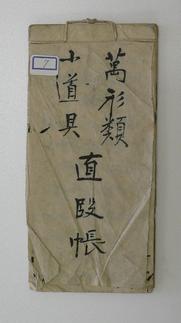 萬形類
小道具
直段帳
7